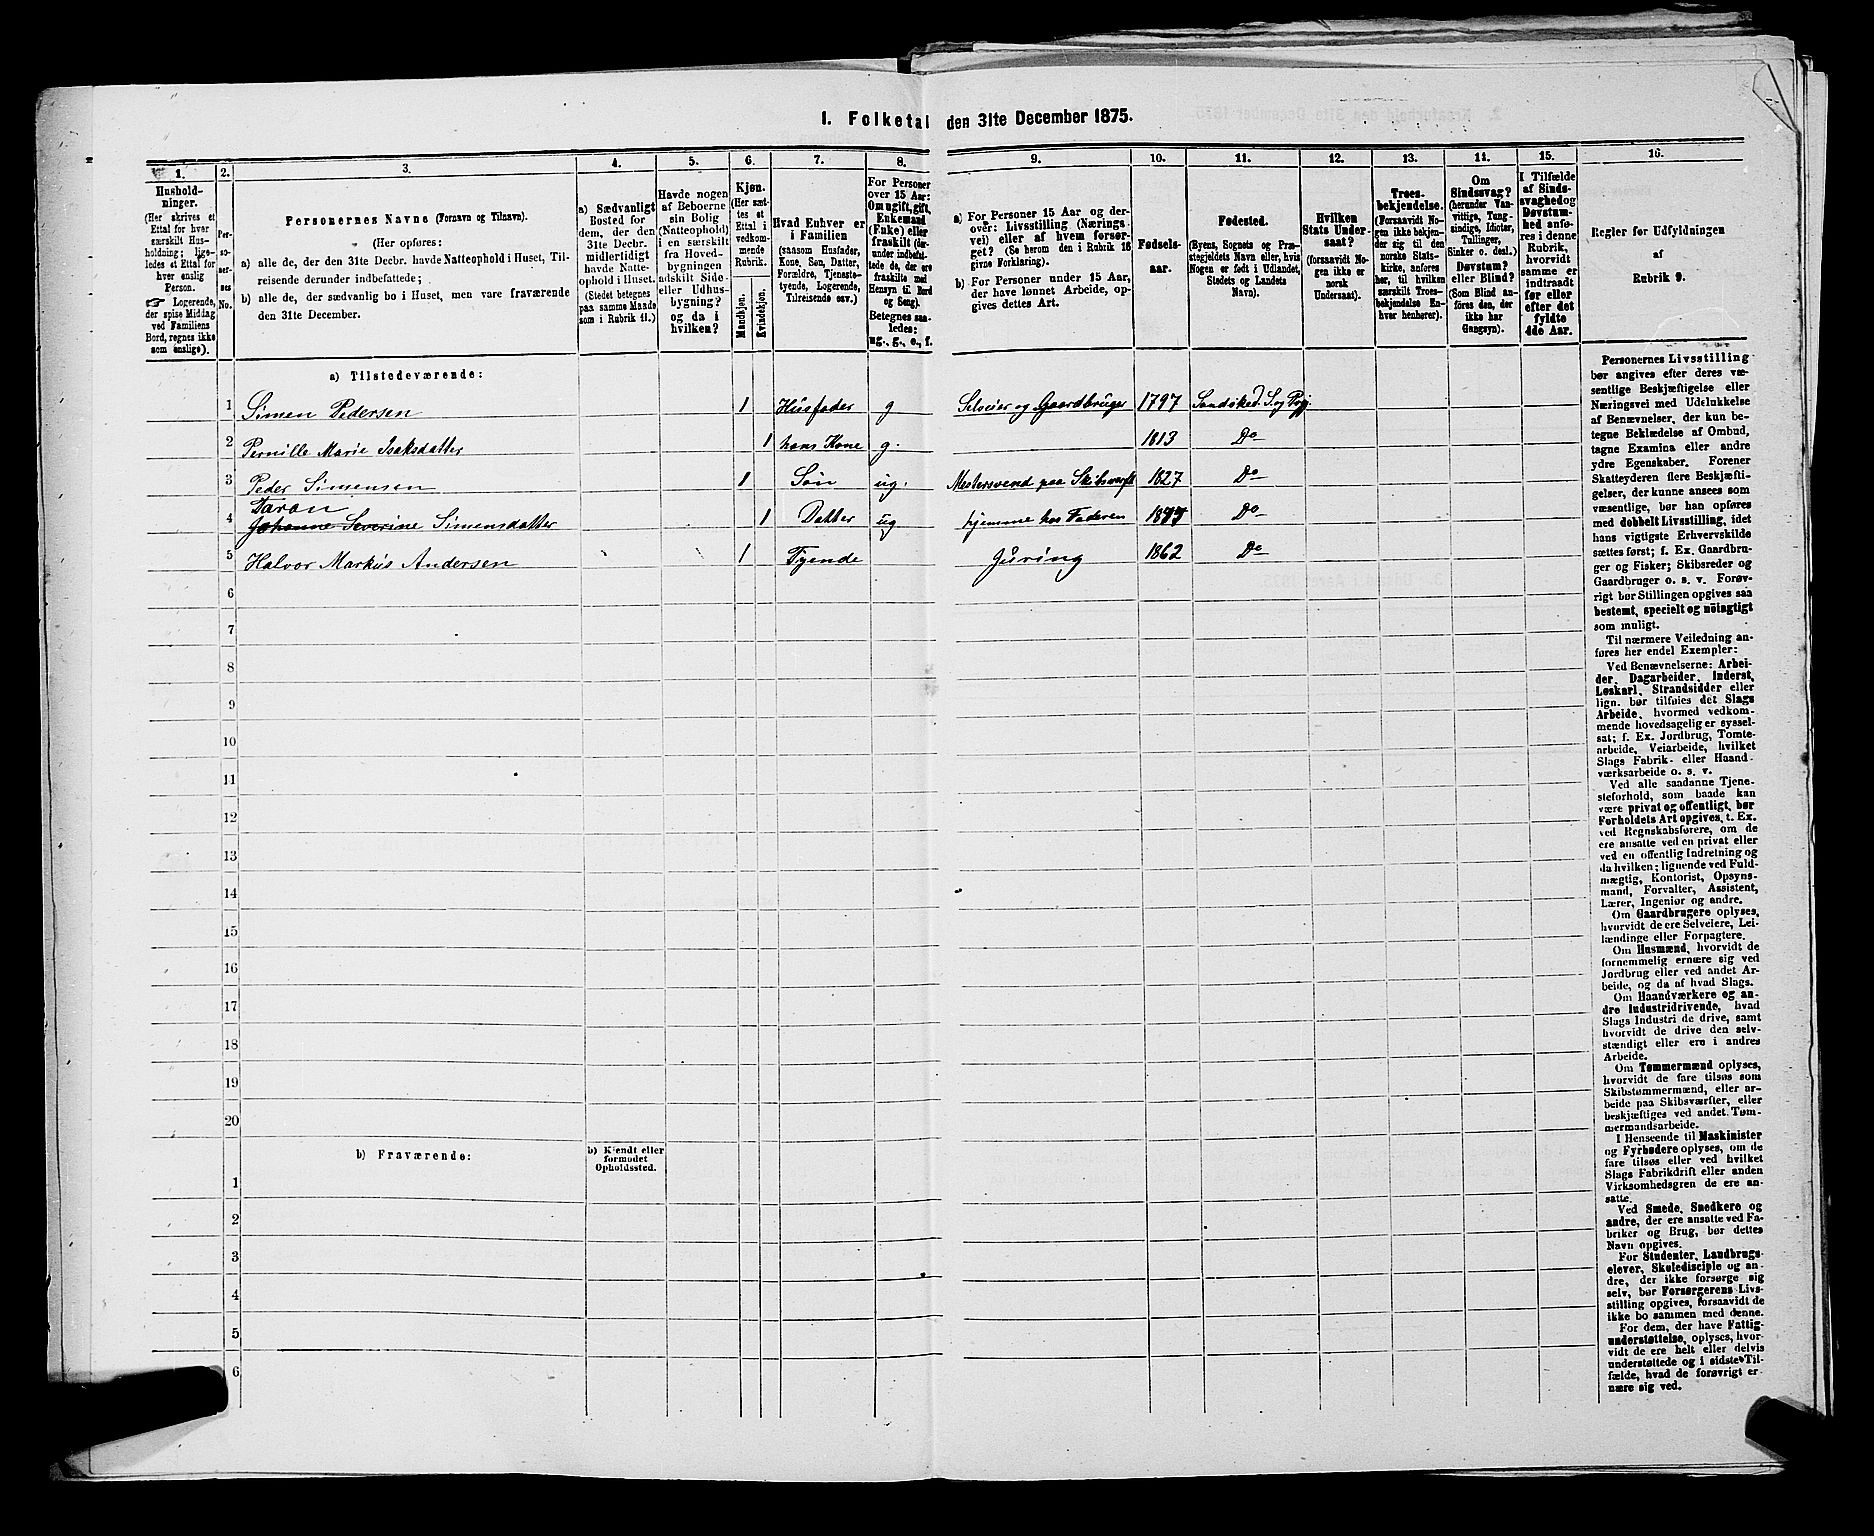 1. Folketal den 31te December 1875.
1. 2. 3. 4. 5. 6. 7. 8. 9. 10. 11. 12. 13. 14. 15. 16.
Hushold-
ninger.
(Her skrives et
Ettal for hver
særskilt Hus-
holdning; lige-
ledes et Ettal for
hver enslig
Person.
☞ Logerende,
der spise Middag
ved Familiens
Bord, regnes ikke
som enslige).
Per-
so-
ner-
nes
No.
Personernes Navne (Fornavn og Tilnavn).
(Her opføres:
a) alle de, der den 31te Decbr. havde Natteophold i Huset, Til-
reisende derunder indbefattede;
b) alle de, der sædvanlig bo i Huset, men vare fraværende
den 31te December.
a) Sædvanligt
Bosted for
dem, der den
31te Decbr.
midlertidigt
havde Natte-
ophold i Huset.
(Stedet betegnes
paa samme Maade
som i Rubrik 11.)
Havde nogen
af Beboerne
sin Bolig
(Natteophold)
i en særskilt
fra Hoved-
bygningen
adskilt Side-
eller Udhus-
bygning?
og da i
hvilken?
Kjøn.
(Her sæt-
tes et
Ettal i
vedkom-
mende
Rubrik.
Mandkjøn.
Kvindekjøn.
Hvad Enhver er
i Familien
(saasom Husfader,
Kone, Søn, Datter,
Forældre, Tjeneste-
tyende, Logerende,
Tilreisende osv.)
For Personer
over 15 Aar:
Om ugift, gift,
Enkemand
(Enke) eller
fraskilt (der-
under indbefat-
tede de, der ere
fraskilte med
Hensyn til Bord
og Seng).
Betegnes saa-
ledes:
ug., g., e., f.
a) For Personer 15 Aar og der-
over: Livsstilling (Nærings-
vei) eller af hvem forsør-
get? (Se herom den i Rubrik 16
givne Forklaring).
b) For Personer under 15 Aar,
der have lønnet Arbeide, op-
gives dettes Art.
Fødsels-
aar.
Fødested.
(Byens, Sognets og Præ-
stegjeldets Navn eller, hvis
Nogen er født i Udlandet,
Stedets og Landets
Navn).
Hvilken
Stats Under-
saat?
(forsaavidt No-
gen ikke er
norsk
Undersaat).
Troes-
bekjendelse.
(Forsaavidt No-
gen ikke bekjen-
der sig til den
norske Stats-
kirke, anføres
her, til hvilken
særskilt Troes-
bekjendelse En-
hver henhører).
Om
Sindssvag?
(herunder Van-
vittige, Tung-
sindige, Idioter,
Tullinger,
Sinker o. desl.)
Døvstum?
eller Blind?
(Som Blind an-
føres den, der
ikke har
Gangsyn).
I Tilfælde
af Sinds-
svaghed og
Døvstum-
hed anfø-
res i denne
Rubrik,
hvorvidt
samme er
indtraadt
før eller
efter det
fyldte
4de Aar.
Regler for Udfyldningen
af
Rubrik 9.
a) Tilstedeværende:
1 Simen Pedersen 1 Husfader g Selveier og Gaardbruger 1797 Sandøked. S. og Pgj.
2 Pernille Marie Isaksdatter 1 hans Kone g. 1813 Do
3 Peder Simensen 1 Søn ug. Mestersvend paa Skibsværft 1827 Do
Taran
4 Johanne Severine Simensdatter 1 Datter ug hjemme hos Faderen Do
5 Halvor Markus Andersen 1 Tyende 1862 Do
6
7
8
9
10
11
12
13
14
15
16
17
18
19
20
b) Fraværende:
b) Kjendt eller
formodet
Opholdssted.
1
2
3
4
5
6
Personernes Livsstilling
bør angives efter deres væ-
sentlige Beskjæftigelse eller
Næringsvei med Udelukkelse
af Benævnelser, der kun be-
tegne Beklædelse af Ombud,
tagne Examina eller andre
ydre Egenskaber. Forener
Skatteyderen flere Beskjæfti-
gelser, der kunne ansees som
væsentlige, bør han opføres
med dobbelt Livsstilling, idet
hans vigtigste Erhvervskilde
sættes først; f. Ex. Gaardbru-
ger og Fisker; Skibsreder og
Gaardbruger o. s. v. Forøv-
rigt bør Stillingen opgives saa
bestemt, specielt og nøiagtigt
som muligt.
Til nærmere Veiledning an-
føres her endel Exempler:
Ved Benævnelserne: Arbei-
der, Dagarbeider, Inderst,
Løskarl, Strandsidder eller
lign. bør tilføies det Slags
Arbeide, hvormed vedkom-
mende hovedsagelig er syssel-
sat; f. Ex. Jordbrug, Tomte-
arbeide, Veiarbeide, hvilket
Slags Fabrik- eller Haand-
værksarbeide o. s. v.
Ved alle saadanne Tjene-
steforhold, som baade kan
være privat og offentligt, bør
Forholdets Art opgives, t. Ex.
ved Regnskabsførere, om de
ere ansatte ved en privat eller
ved en offentlig Indretning og
da hvilken; lignende ved Fuld-
mægtig, Kontorist, Opsyns-
mand, Forvalter, Assistent,
Lærer, Ingeniør og andre.
Om Gaardbrugere oplyses,
hvorvidt de ere Selveiere, Lei-
lændinge eller Forpagtere.
Om Husmænd, hvorvidt de
fornemmelig ernære sig ved
Jordbrug eller ved andet Ar-
beide, og da af hvad Slags.
Om Haandværkere og an-
dre Industridrivende, hvad
Slags Industri de drive, samt
hvorvidt de drive den selv-
stændigt eller ere i andres
Arbeide.
Om Tømmermænd oplyses,
hvorvidt de fare tilsøs som
Skibstømmermænd, eller ar-
beide paa Skibsværfter, eller
beskjæftiges ved andet Tøm-
mermandsarbeide.
I Henseende til Maskinister
og Fyrbødere oplyses, om de
fare tilsøs eller ved hvilket
Slags Fabrikdrift eller anden
Virksomhedsgren de ere an-
satte.
Ved Smede, Snedkere og
andre, der ere ansatte ved Fa-
briker og Brug, bør dettes
Navn opgives.
For Studenter, Landbrugs-
elever, Skoledisciple og an-
dre, der ikke forsørge sig
selv, bør Forsørgerens Livs-
stilling opgives, forsaavidt de
ikke bo sammen med denne.
For dem, der have Fattig-
understøttelse, oplyses, hvor-
vidt de ere helt eller delvis
understøttede og i sidste Til-
fælde, hvad de forøvrigt er-
nære sig ved.